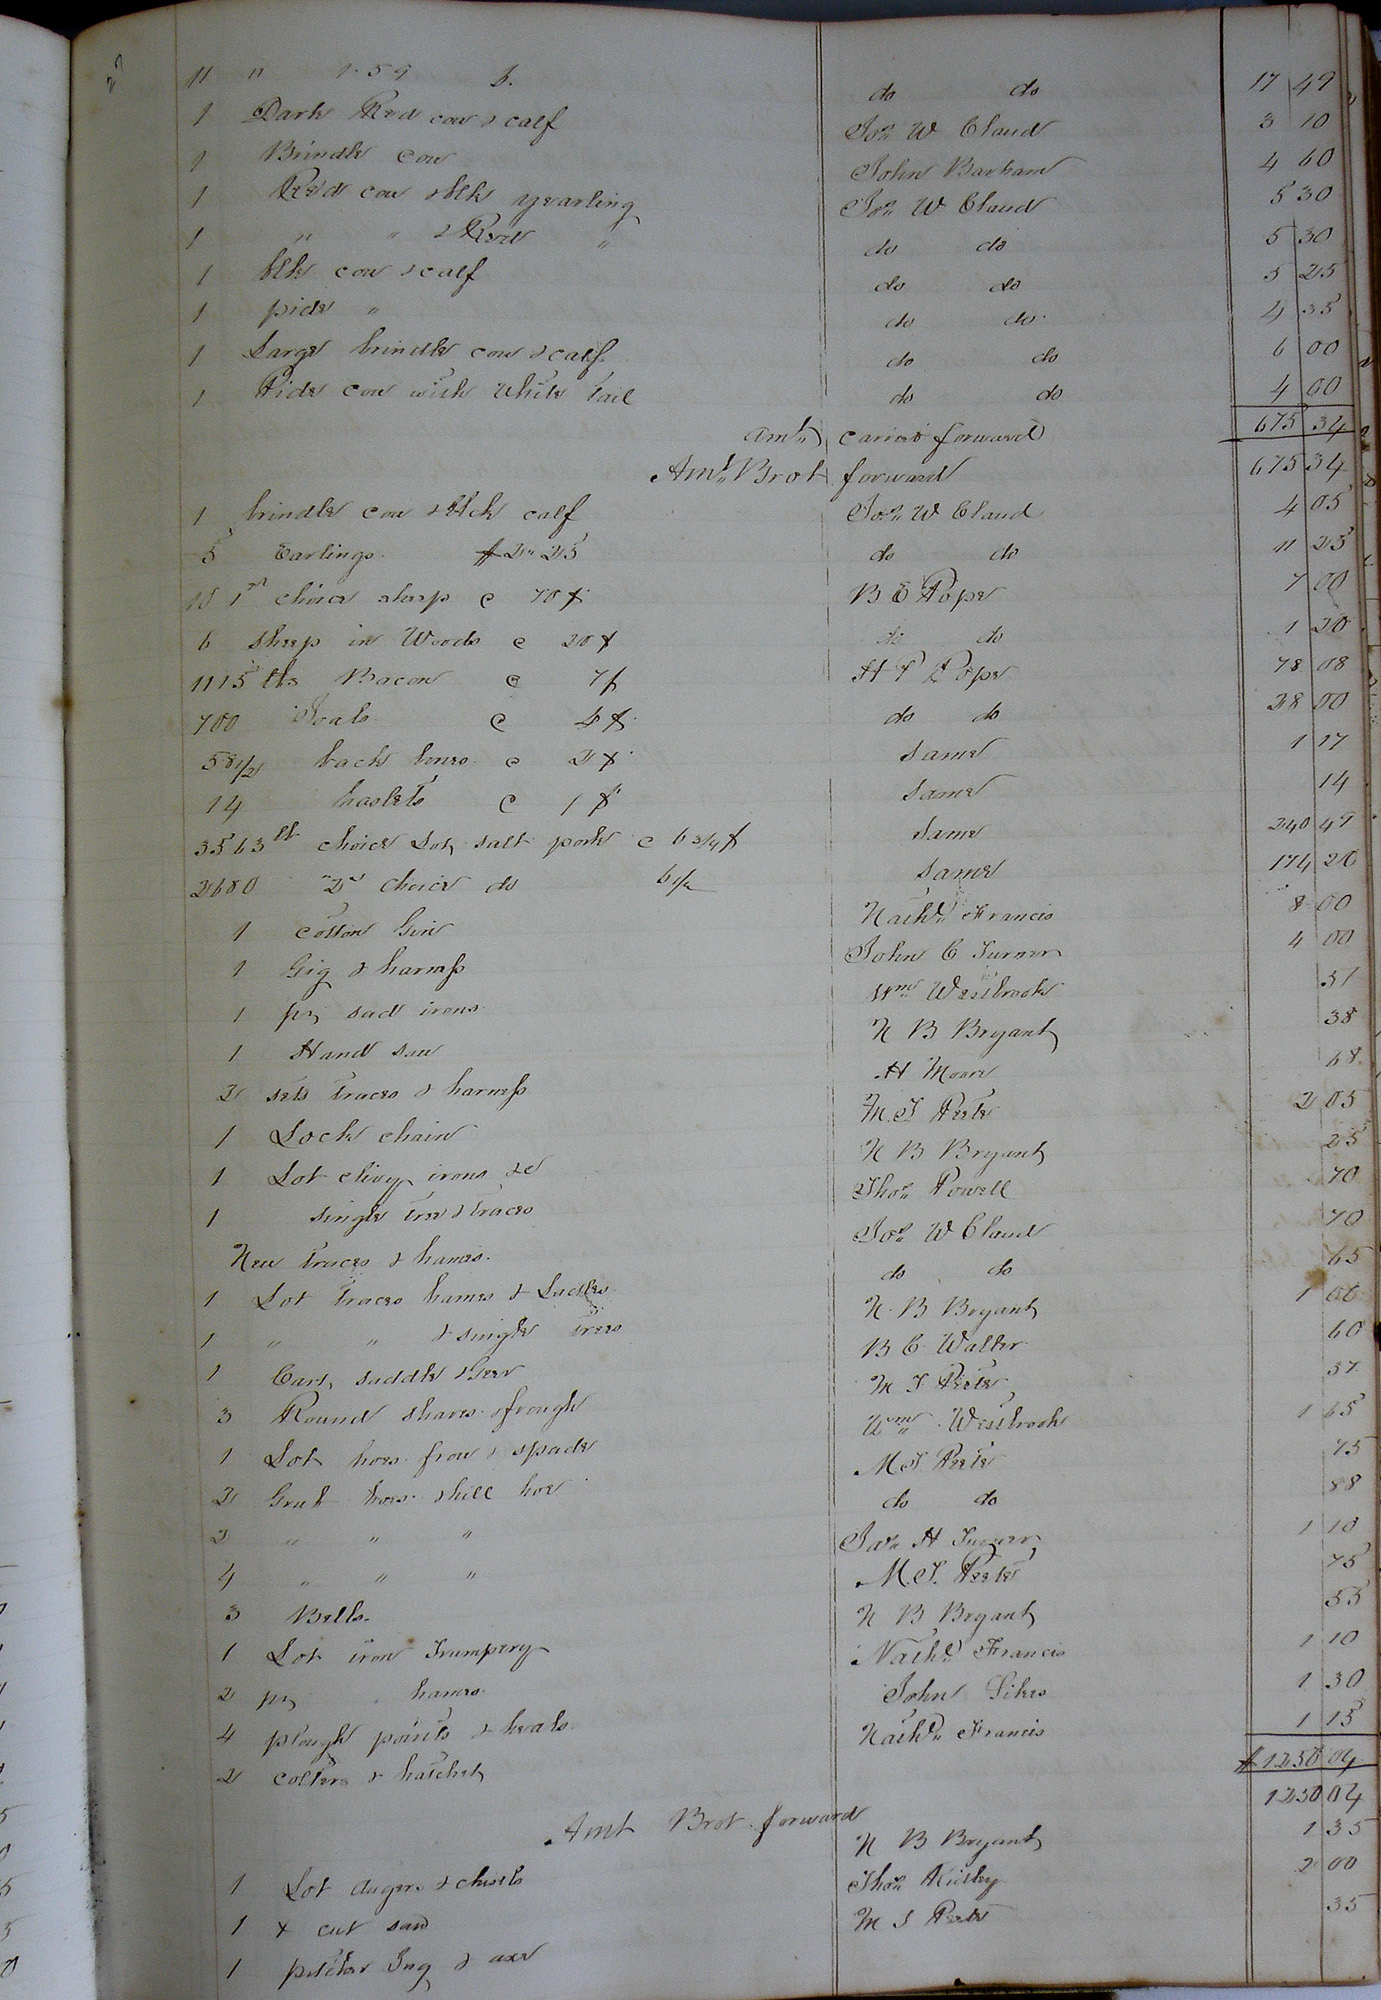 27
11 " 1.59 do do 17 49
1 Dark Red cow & calf Jos. W Claud 3 10
1 Brindle cow John Barham 4 60
1 Red cow & blk yearling Jos. W Claud 5 30
1 " " & Red " do do 5 30
1 blk cow & calf do do 5 25
1 pide " do do 4 35
1 Large brindle cow & calf do do 6 00
1 Pide cow with white tail do do 4 00
Amt. caried forward 675 34
Amt. Brot forward 675 34
1 brindle cow & blck calf Jos. W Claud 4 05
5 Earlings $2.25 do do 11 25
10 1st choice sheep @ 70 ¢ B E Pope 7 00
6 sheep in Woods @ 20 ¢ do do 1 20
1115 lbs Bacon @ 7 ¢ H P Pope 78 08
700 Joals @ 4 ¢ do do 28 00
58 1/2 back bones @ 2 ¢ same 1 17
14 haslets @ 1 ¢ same 14
3563 lb choice Lot salt pork @ 6 3/4 ¢ same 240 49
2680 "2" choice do 6 1/2 same 174 20
1 cotton Gin Nathl. Francis 8 00
1 Gig & harness John C Turner 4 00
1 pr sad irons Wm. Westbrook 51
1 Hand saw N B Bryant 38
2 sets traces & harness H Moore 68
1 Lock chain M. T Peete 2 05
1 Lot clivy irons &c N B Bryant 25
1 single tree & traces Thos. Powell 70
New traces & hames Jos. W Claud 70
1 Lot traces hames & Saddles do do 65
1 " " & single trees N. B Bryant 1 00
1 Cart, saddle & Geer B C Walter 60
3 Round shaves & frough M T Peete 37
1 Lot hoes frow & spade Wm. Westbrook 1 65
2 Grub hoes & hill hoe M T Peete 75
2 " " " do do 88
4 " " " Jas. H Turner 1 10
3 Bells M. T. Peete 75
1 Lot iron Trumpery N B Bryant 55
2 pr hames Nathl. Francis 1 10
4 plough points & heals John Sikes 1 30
2 colters & hatchet Nathl. Francis 1 15
$1250 04
Amt Brot. forward 1250 04
1 Lot Augers & chisels N B Bryant 1 35
1 x cut saw Thos. Ridley 2 00
1 pitcher Jug & axe M T Peete 35